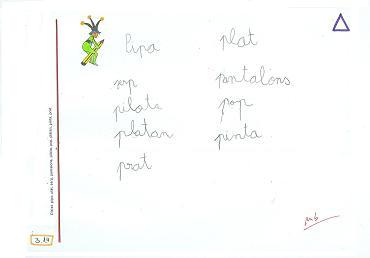 lipa
plat
serp
pantalons
pilota
pop
platan
pinta
prat
3.14